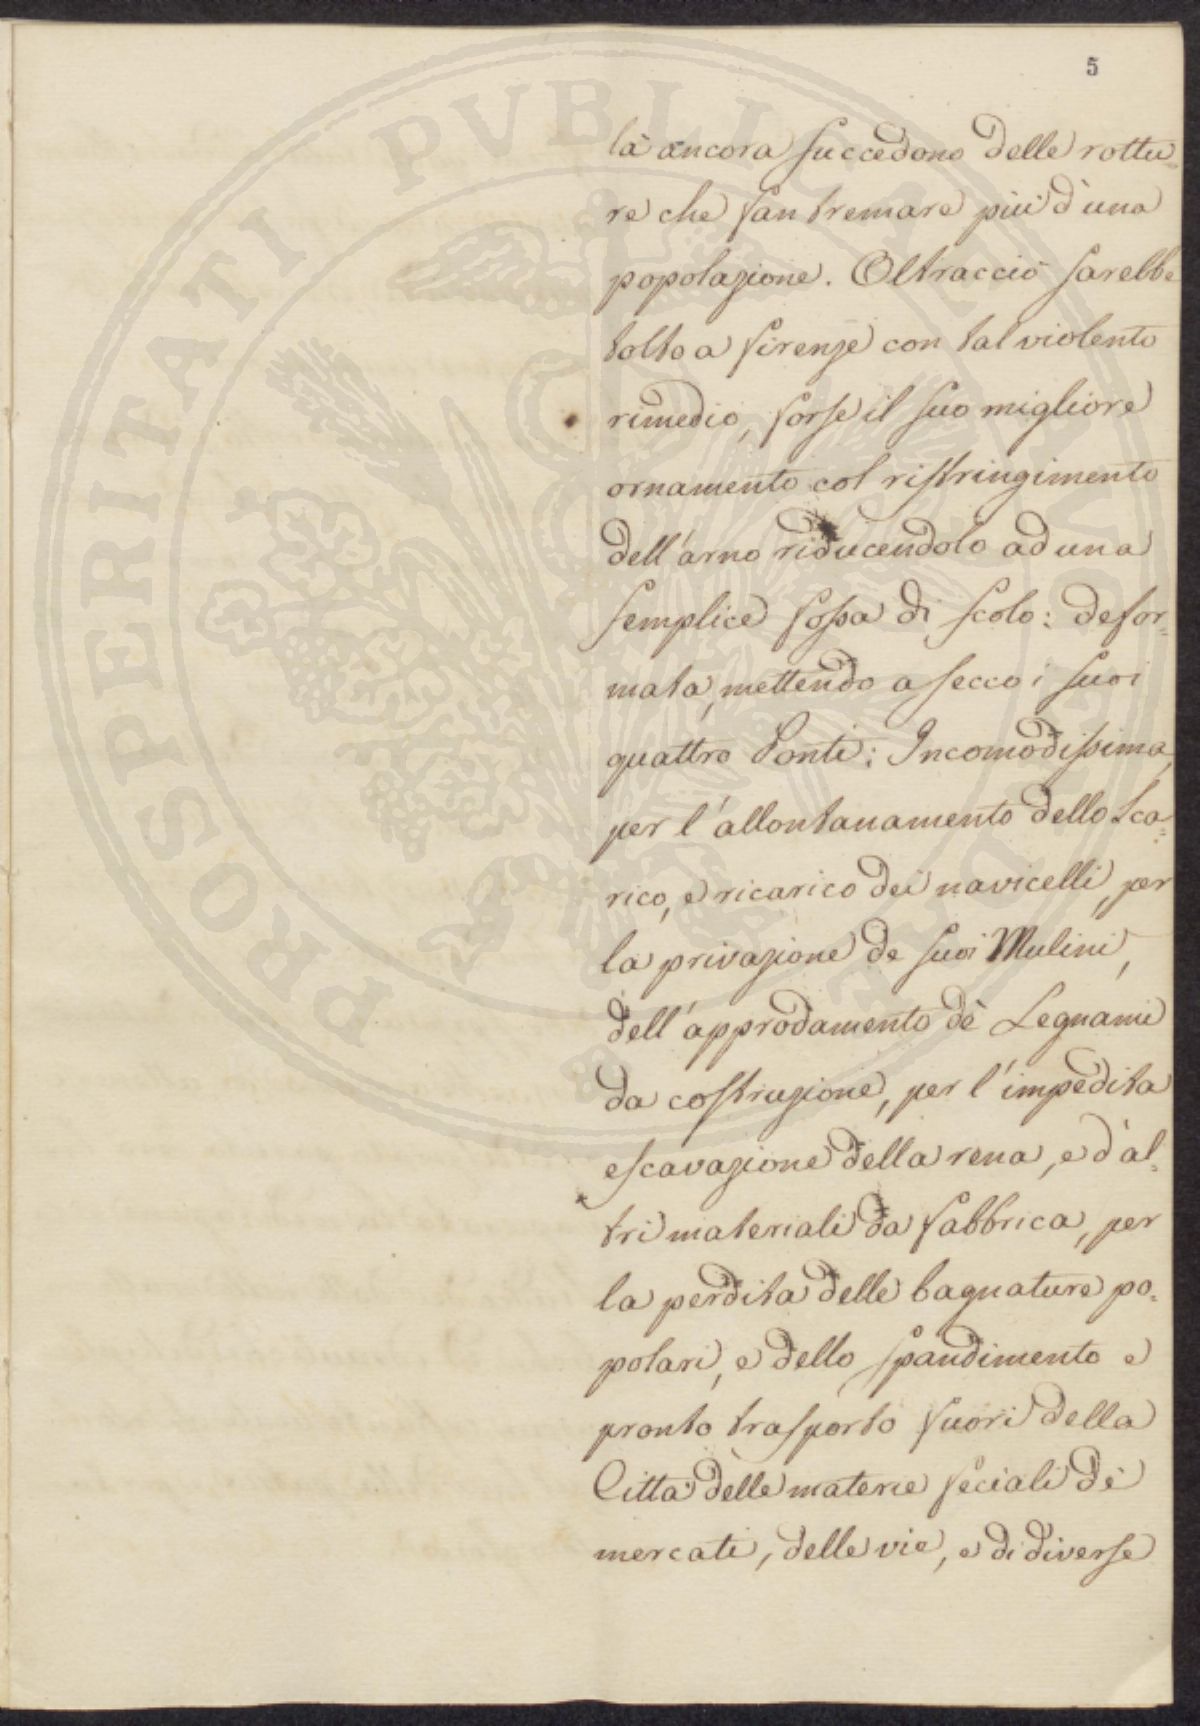 5
PROSPERITATI PVBLICAE
là ancora succedono delle rottu=
re che fan tremare più d'una
popolazione. Oltracciò sarebbe
tolto a firenze con tal violento
rimedio, forse il suo migliore
ornamento col ristringimento
dell'arno riducendolo ad una
semplice fossa di scolo: defor=
mata, mettendo a secco i suoi
quattro Ponti: Incomodissima,
per l'allontanamento dello sca=
rico, e ricarico dei navicelli, per
la privazione de suoi Mulini,
dell'approdamento dè Legnami
da costruzione, per l'impedita
escavazione della rena, e d'al=
tri materiali da fabbrica, per
la perdita delle bagnature po=
polari, e dello spandimento e
pronto trasporto fuori della
Città delle materie feciali dè
mercati, delle vie, e di diverse